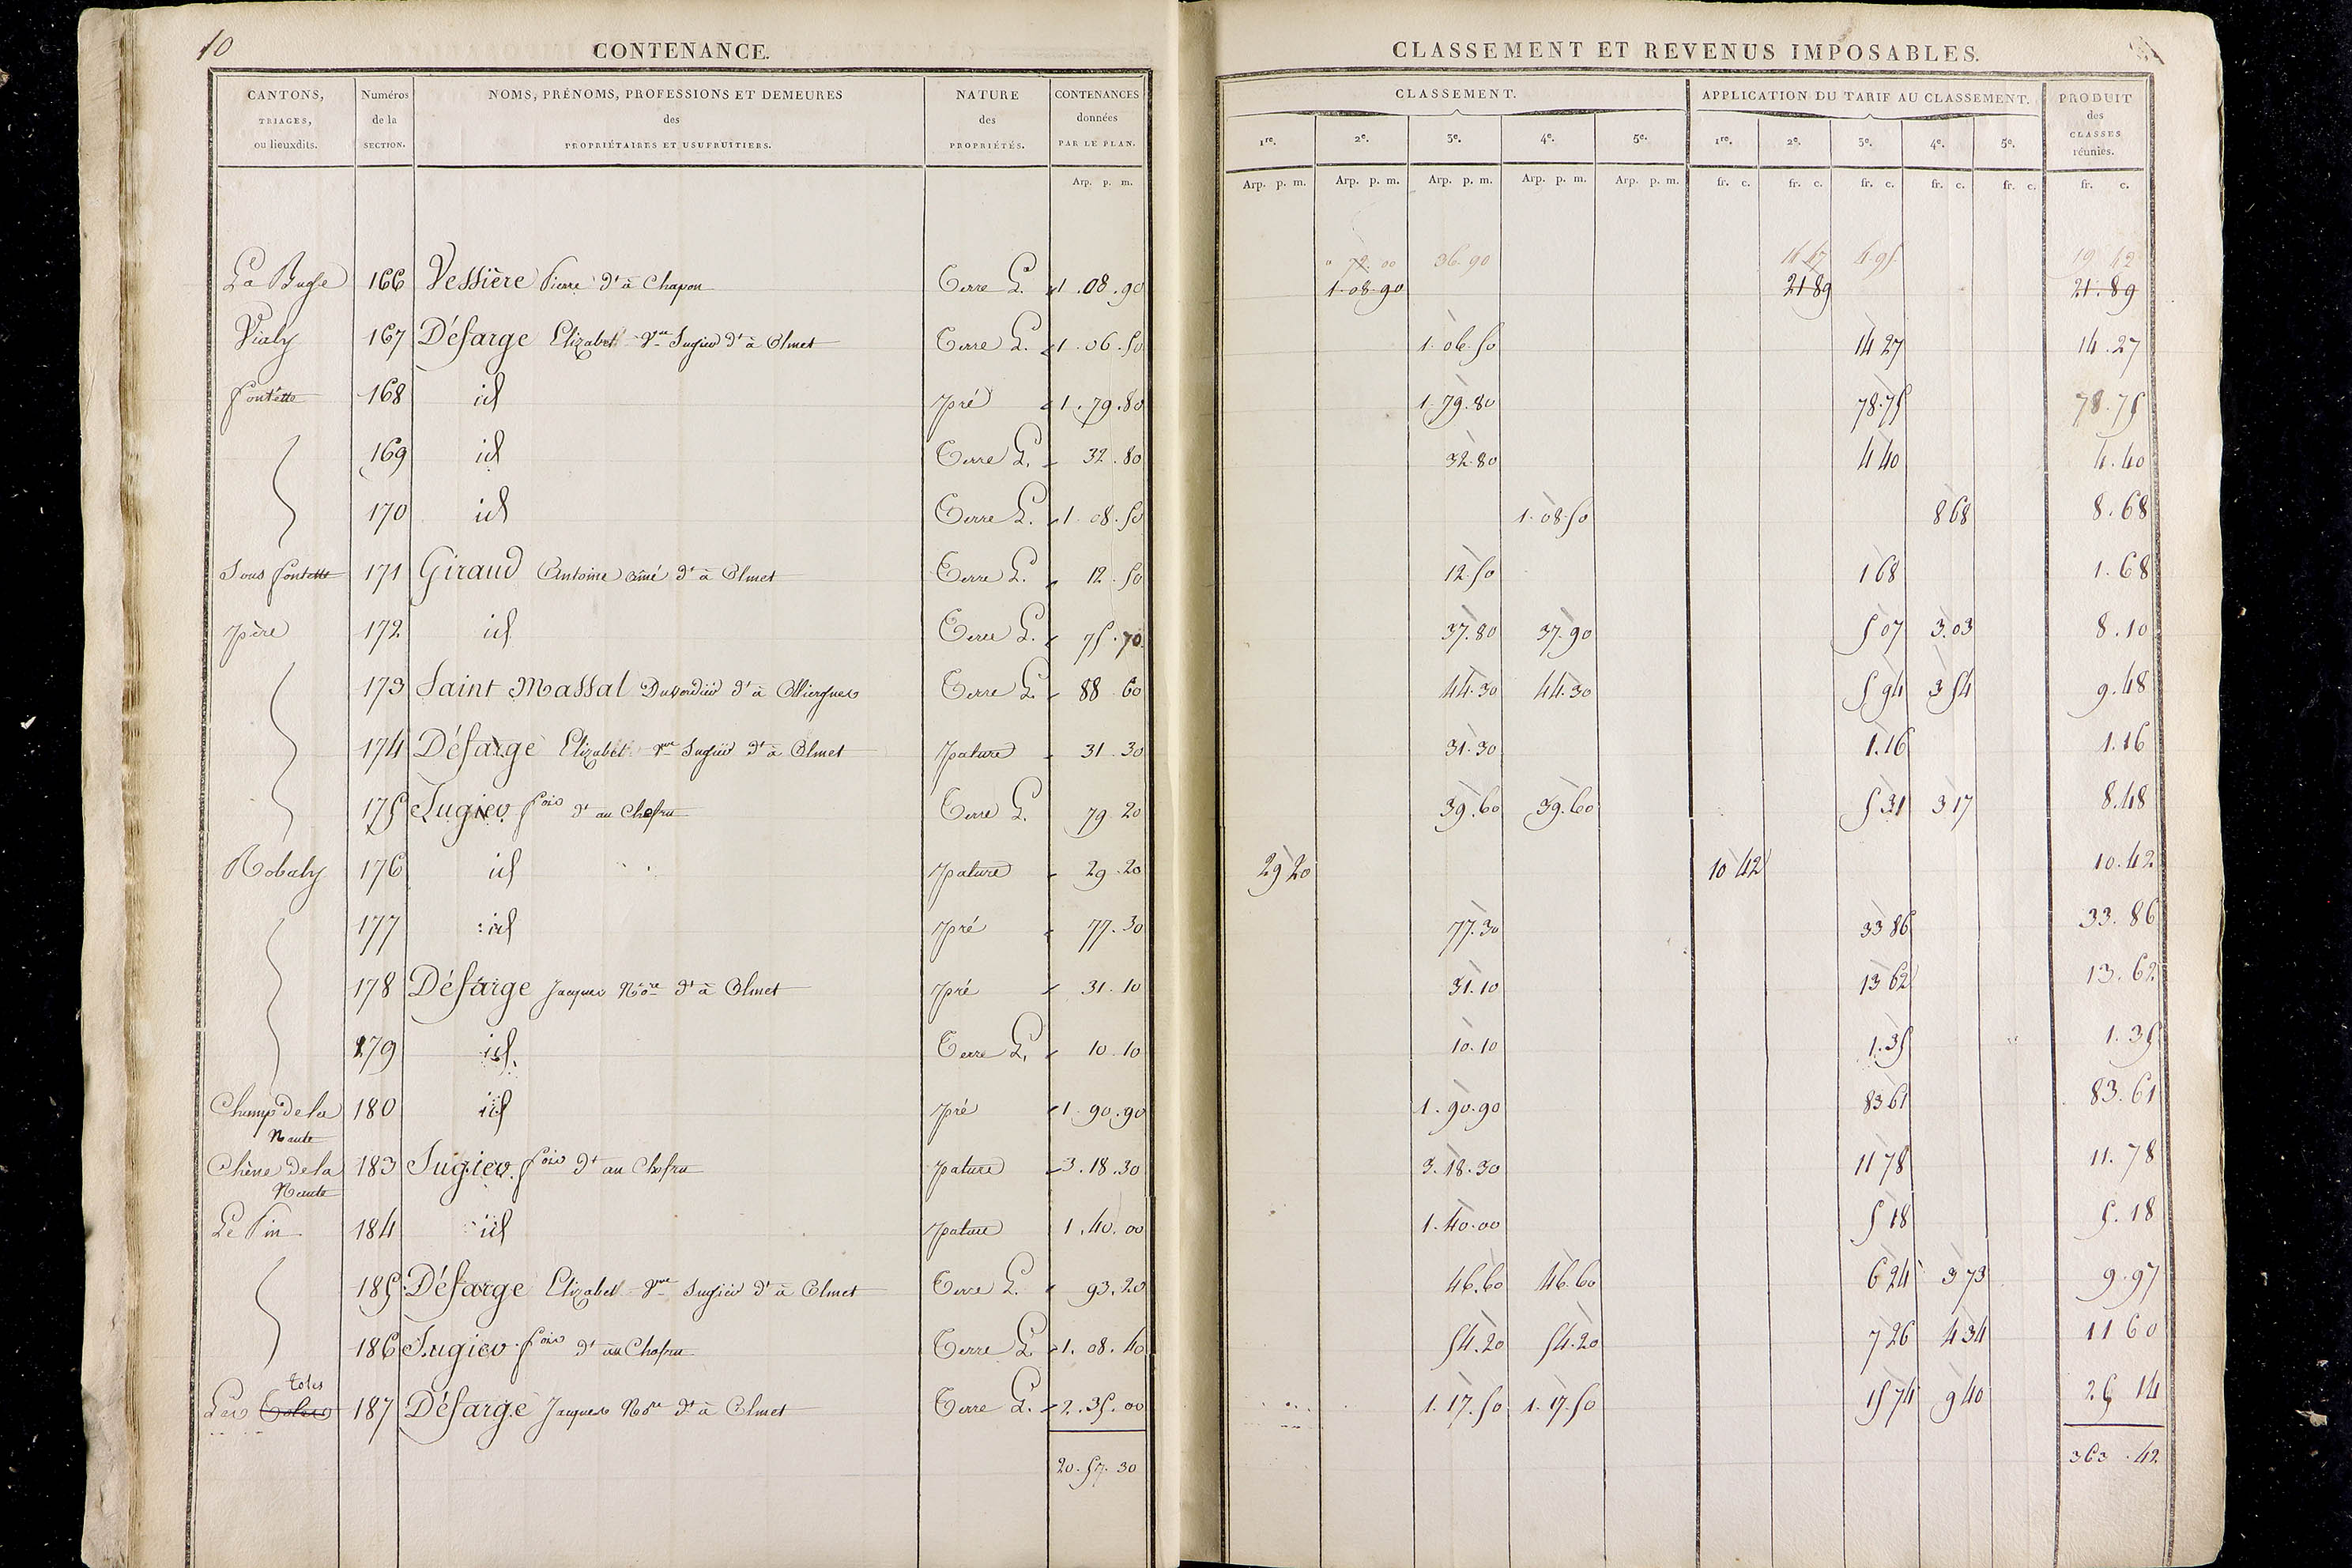 10
CONTENANCE.
CLASSEMENT ET REVENUS IMPOSABLES.
CANTONS, TRIAGES, ou lieuxdits.
Numéros de la SECTION.
NOMS, PRÉNOMS, PROFESSIONS ET DEMEURES des PROPRIÉTAIRES ET USUFRUITIERS.
NATURE des PROPRIÉTÉS.
CONTENANCES données PAR LE PLAN.
CLASSEMENT.
APPLICATION DU TARIF AU CLASSEMENT.
PRODUIT des CLASSES réunies.
1re. 2e. 3e. 4e. 5e. 1re. 2e. 3e. 4e. 5e.
Arp. p. m. Arp. p. m. Arp. p. m. Arp. p. m. Arp. p. m. Arp. p. m. fr. c. fr. c. fr. c. fr. c. fr. c. fr. c.
72.00 36.90 14 47 4.95 19 42
La Buge 166 Vessière Pierre dt à Chapon Terre L. 1.08.90 1.08.90 21 89 21.89
Vialy 167 Défarge Elizabet Vve Sugier dt à Olmet Terre L. 1.06.50 1.06.50 14 27 14.27
fontette 168 id pré 1.79.80 1.79.80 78.75 78.75
169 id Terre L. 32.80 32.80 4 40 4.40
170 id Terre L. 1.08.50 1.08.50 8 68 8.68
Sous fontette 171 Giraud Antoine ainé dt à Olmet Terre L. 12.50 12.50 1 68 1.68
père 172 id Terre L. 75.70 37.80 37.90 5 07 3.03 8.10
173 Saint Massal dt à Terre L. 88.60 44.30 44.30 5 94 3 54 9.48
174 Défarge Elizabet Vve Sugier dt à Olmet pature 31.30 31.30 1.16 1.16
175 Sugier fois dt au Chofru Terre L. 79.20 39.60 39.60 5 31 3 17 8.48
Robaly 176 id pature 29.20 29 20 10 42 10.42
177 id pré 77.30 77.30 33 86 33.86
178 Défarge Jacques Nore dt à Olmet pré 31.10 31.10 13 62 13.62
179 id. Terre L. 10.10 10.10 1.35 1.35
Champ de la 180 id pré 1.90.90 1.90.90 83 61 83.61
Naute
Chène de la 183 Sugier fois dt au Chofru pature 3.18.30 3.18.30 11 78 11.78
Naute
Le Pin 184 id pature 1.40.00 1.40.00 5 18 5.18
185 Défarge Elizabet Vve Sugier dt à Olmet Terre L. 93.20 46.60 46.60 6 24 3 73 9.97
186 Sugier fois dt au Chofru Terre L. 1.08.40 54.20 54.20 7 26 4 34 11 60
toles
Les Toles 187 Défarge Jacques Nore dt à Olmet Terre L. 2.35.00 1.17.50 1.17.50 15 74 9 40 25 14
20.57.30 363.42